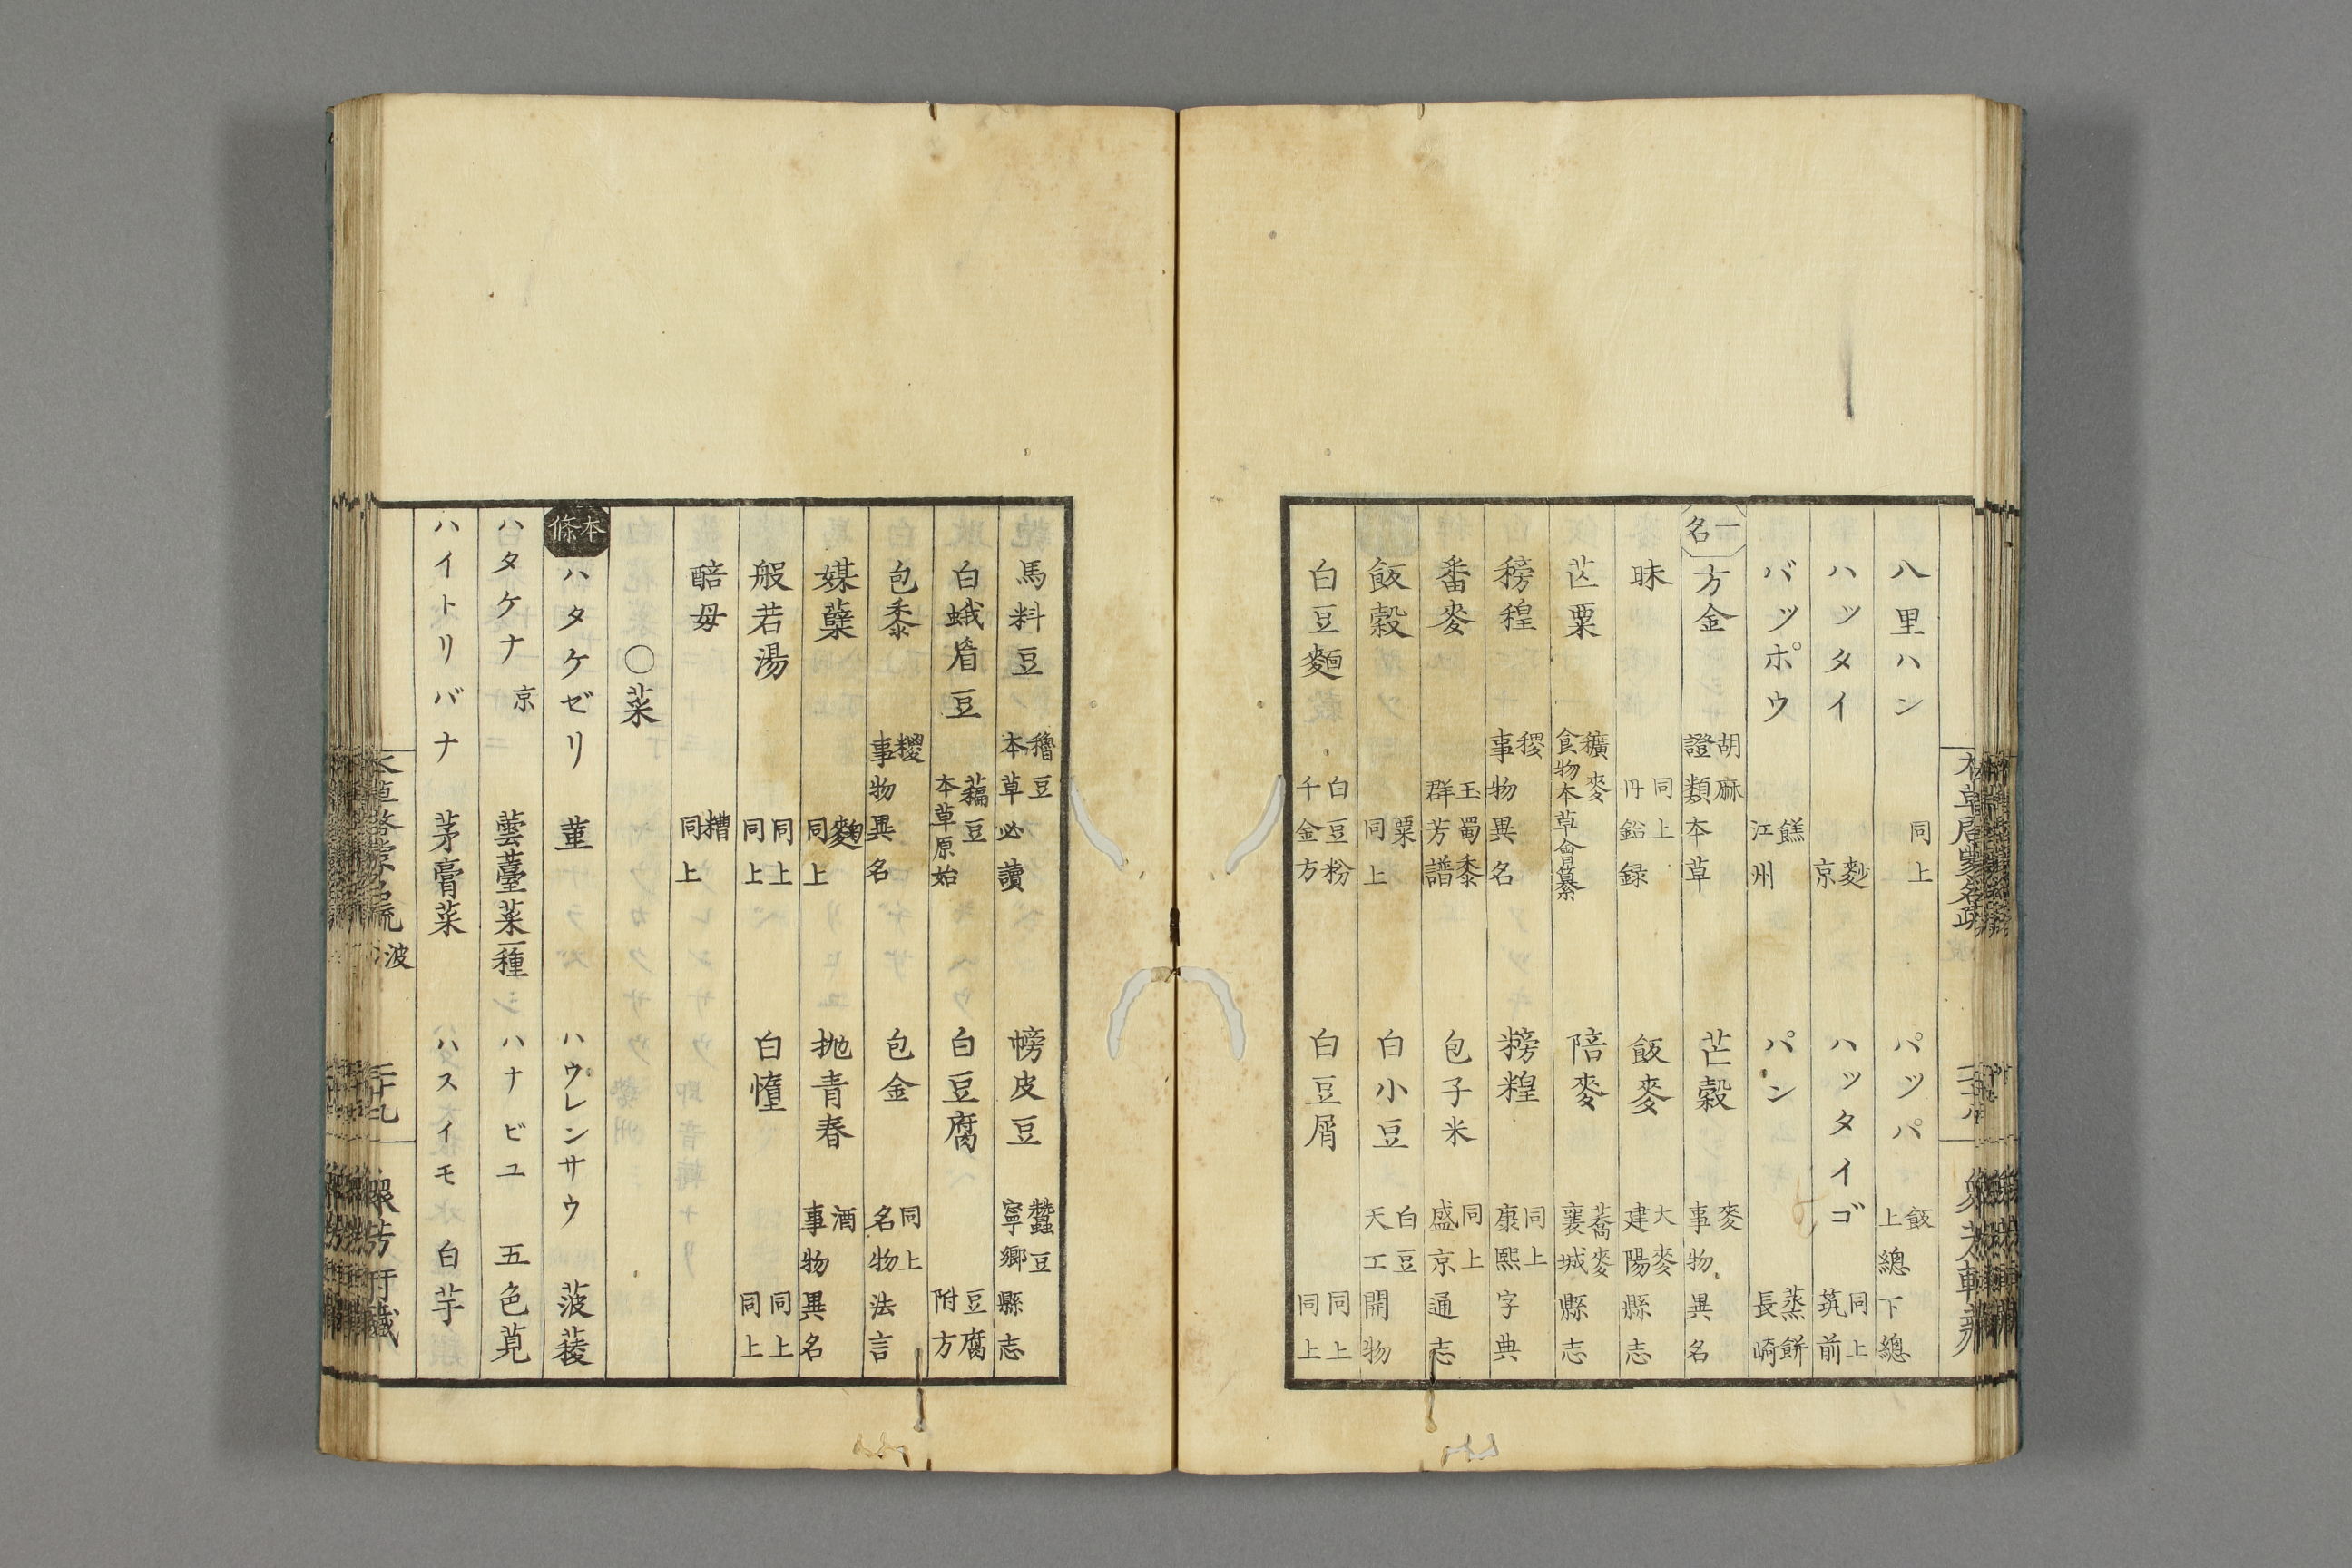 八里ハン 同上 パツパ 飯 上總下總
ハツタイ 麨 京 ハツタイゴ 同上 筑前
バツポウ 餻 江州 パン 蒸餅 長崎
一名 方金 胡麻 證類本草 芒穀 麥 事物異名
眛 同上 丹鉛録 飯麥 大麥 建陽縣志
芑粟 穬麥 食物本草會纂 陪麥 蕎麥 襄城縣志
䅭䅣 稷 事物異名 䅭䅣 同上 康熙字典
番麥 玉蜀黍 群芳譜 包子米 同上 盛京通志
飯穀 粟 同上 白小豆 白豆 天工開物
白豆麪 白豆粉 千金方 白豆屑 同上 同上
馬料豆 穭豆 本草必讀 㡁皮豆 蠶豆 寧鄉縣志
白蛾眉豆 藊豆 本草原始 白豆腐 豆腐 附方
包黍 稷 事物異名 包金 同上 名物法言
媒蘖 麴 同上 抛青春 酒 事物異名
般若湯 同上 同上 白墮 同上 同上
醅母 糟 同上
〇菜
本條 ハタケゼリ 菫 ハウレンサウ 菠薐
ハタケナ 京 蕓薹菜一種 ハナビユ 五色莧
ハイトリバナ 茅膏菜 ハスイモ 白芋
本草啓蒙名疏 波 二十九 衆芳軒藏